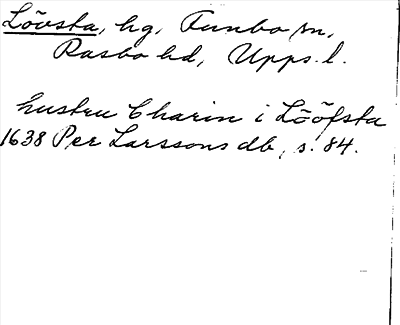 Lövsta, hg, Funbo sn,
Rasbo hd, Upps. l.
hustru Charin i Löòfsta
1638 Per Larssons db, s. 84.